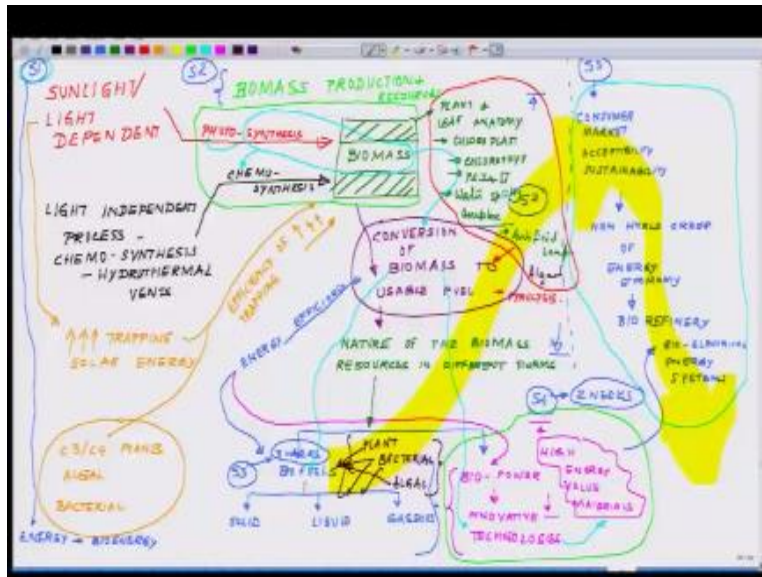 S1
SUNLIGHT/
LIGHT
DEPENDENT
LIGHT INDEPENDENT
PROCESS -
CHEMO-SYNTHESIS
- HYDROTHERMAL
VENTS
↑↑↑ TRAPPING
SOLAR ENERGY
C3/C4 PLANTS
ALGAL
BACTERIAL
ENERGY → BIOENERGY
S2
BIOMASS PRODUCTION
RESOURCES
PHOTO-SYNTHESIS
BIOMASS
CHEMO-
SYNTHESIS
EFFICIENCY OF ↑↑↑
TRAPPING
PLANT &
LEAF ANATOMY
CHLOROPLAST
CHLOROPHYLL
Algae
CONVERSION
OF
BIOMASS TO
USABLE FUEL
→ PYROLYSIS
ENERGY EFFICIENCY
NATURE OF THE BIOMASS
RESOURCES IN DIFFERENT FORMS
S3
BIOFUELS
PLANT
BACTERIAL
ALGAL
SOLID
LIQUID
GASEOUS
S4
2 WEEKS
BIO-POWER
INNOVATIVE
TECHNOLOGIES
HIGH
ENERGY
VALUE
MATERIALS
CONSUMER
MARKET
ACCEPTABILITY
SUSTAINABILITY
OF
ENERGY
ECONOMY
BIO REFINERY
BIO-ELECTRICAL
ENERGY
SYSTEMS